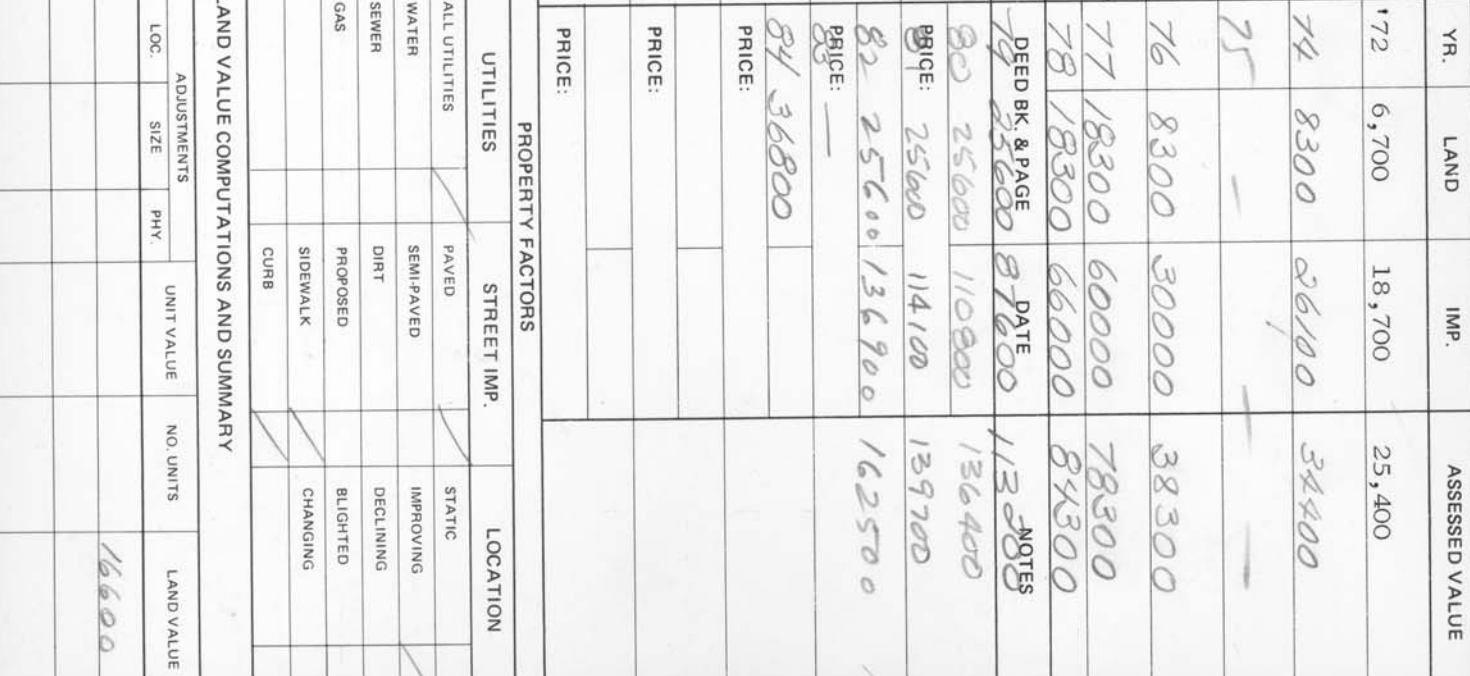 YR. LAND IMP. ASSESSED VALUE
'72 6,700 18,700 25,400
74 8300 26100 34400
75 — — —
76 8300 30000 38300
77 18300 60000 78300
78 18300 66000 84300
DEED BK. & PAGE DATE NOTES
79 25600 87600 113200
80 25600 110800 136400
PRICE:
81 25600 114100 139700
82 25600 136900 162500
PRICE:
83 —
84 36800
PRICE:
PRICE:
PRICE:
PROPERTY FACTORS
UTILITIES STREET IMP. LOCATION
ALL UTILITIES / PAVED / STATIC
WATER SEMI-PAVED IMPROVING /
SEWER DIRT DECLINING
GAS PROPOSED BLIGHTED
SIDEWALK / CHANGING
CURB /
LAND VALUE COMPUTATIONS AND SUMMARY
ADJUSTMENTS
LOC. SIZE PHY. UNIT VALUE NO. UNITS LAND VALUE
16600